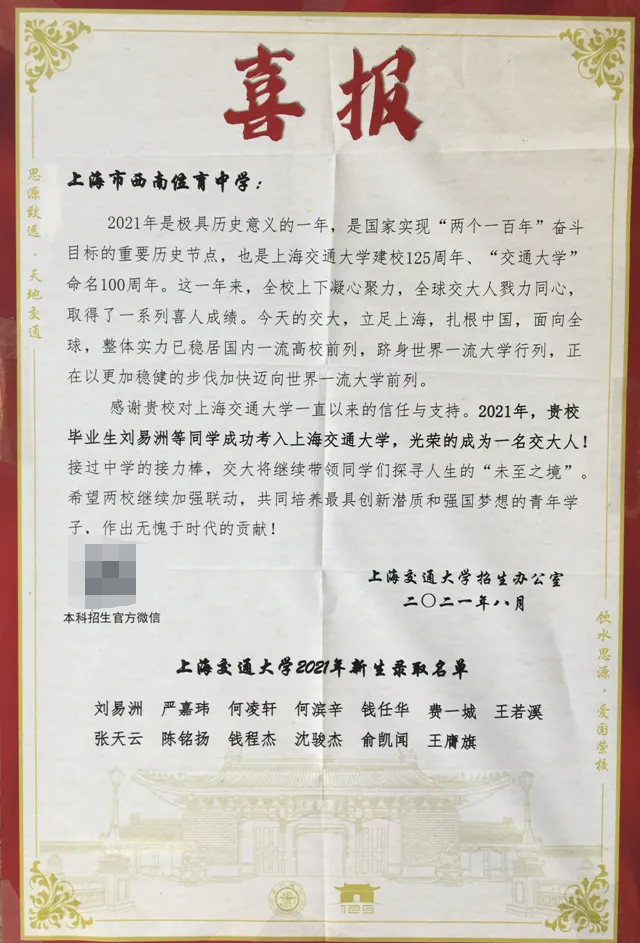 喜报
思源致远·天地交通
上海市西南位育中学：
2021年是极具历史意义的一年，是国家实现“两个一百年”奋斗
目标的重要历史节点，也是上海交通大学建校125周年、“交通大学”
命名100周年。这一年来，全校上下凝心聚力，全球交大人戮力同心，
取得了一系列喜人成绩。今天的交大，立足上海，扎根中国，面向全
球，整体实力已稳居国内一流高校前列，跻身世界一流大学行列，正
在以更加稳健的步伐加快迈向世界一流大学前列。
感谢贵校对上海交通大学一直以来的信任与支持。2021年，贵校
毕业生刘易洲等同学成功考入上海交通大学，光荣的成为一名交大人！
接过中学的接力棒，交大将继续带领同学们探寻人生的“未至之境”。
希望两校继续加强联动，共同培养最具创新潜质和强国梦想的青年学
子，作出无愧于时代的贡献！
本科招生官方微信
上海交通大学招生办公室
二〇二一年八月
饮水思源·爱国荣校
上海交通大学2021年新生录取名单
刘易洲 严嘉玮 何凌轩 何滨辛 钱任华 费一城 王若溪
张天云 陈铭扬 钱程杰 沈骏杰 俞凯闻 王膺旗
125